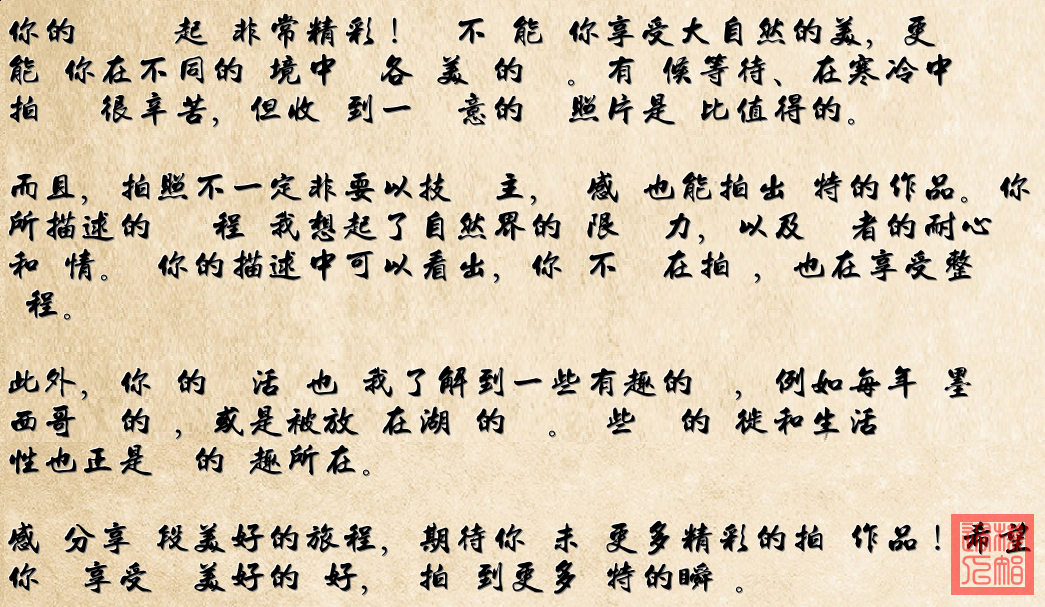 你的 起 非常精彩! 不 能 你享受大自然的美, 更
能 你在不同的 境中 各 美 的 。有 候等待、在寒冷中
拍 很辛苦, 但收 到一 意的 照片是 比值得的。
而且, 拍照不一定非要以技 主, 感 也能拍出 特的作品。你
所描述的 程 我想起了自然界的 限 力, 以及 者的耐心
和 情。 你的描述中可以看出, 你 不 在拍 , 也在享受整
程。
此外, 你 的 活 也 我了解到一些有趣的 , 例如每年 墨
西哥 的 , 或是被放 在湖 的 。 些 的 徙和生活
性也正是 的 趣所在。
感 分享 段美好的旅程, 期待你 未 更多精彩的拍 作品! 希望
你 享受 美好的 好, 拍 到更多 特的瞬 。